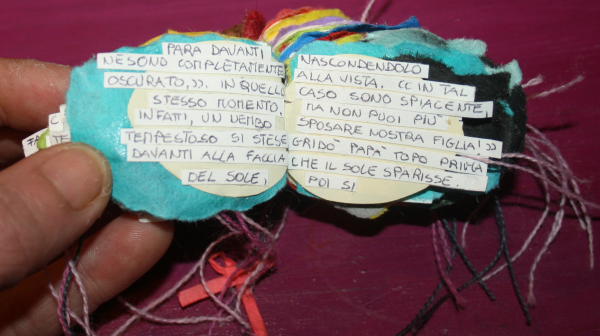 PARA DAVANTI
NE SONO COMPLETAMENTE
OSCURATO,». IN QUELLO
STESSO MOMENTO,
INFATTI, UN NEMBO
TEMPESTOSO SI STESE
DAVANTI ALLA FAGLIA
DEL SOLE,
NASCONDENDOLO
ALLA VISTA. «IN TAL
CASO SONO SPIACENTE,
MA NON PUOI PIU'
SPOSARE NOSTRA FIGLIA!»
GRIDO' PAPA' TOPO PRIMA
CHE IL SOLE SPARISSE.
POI SI